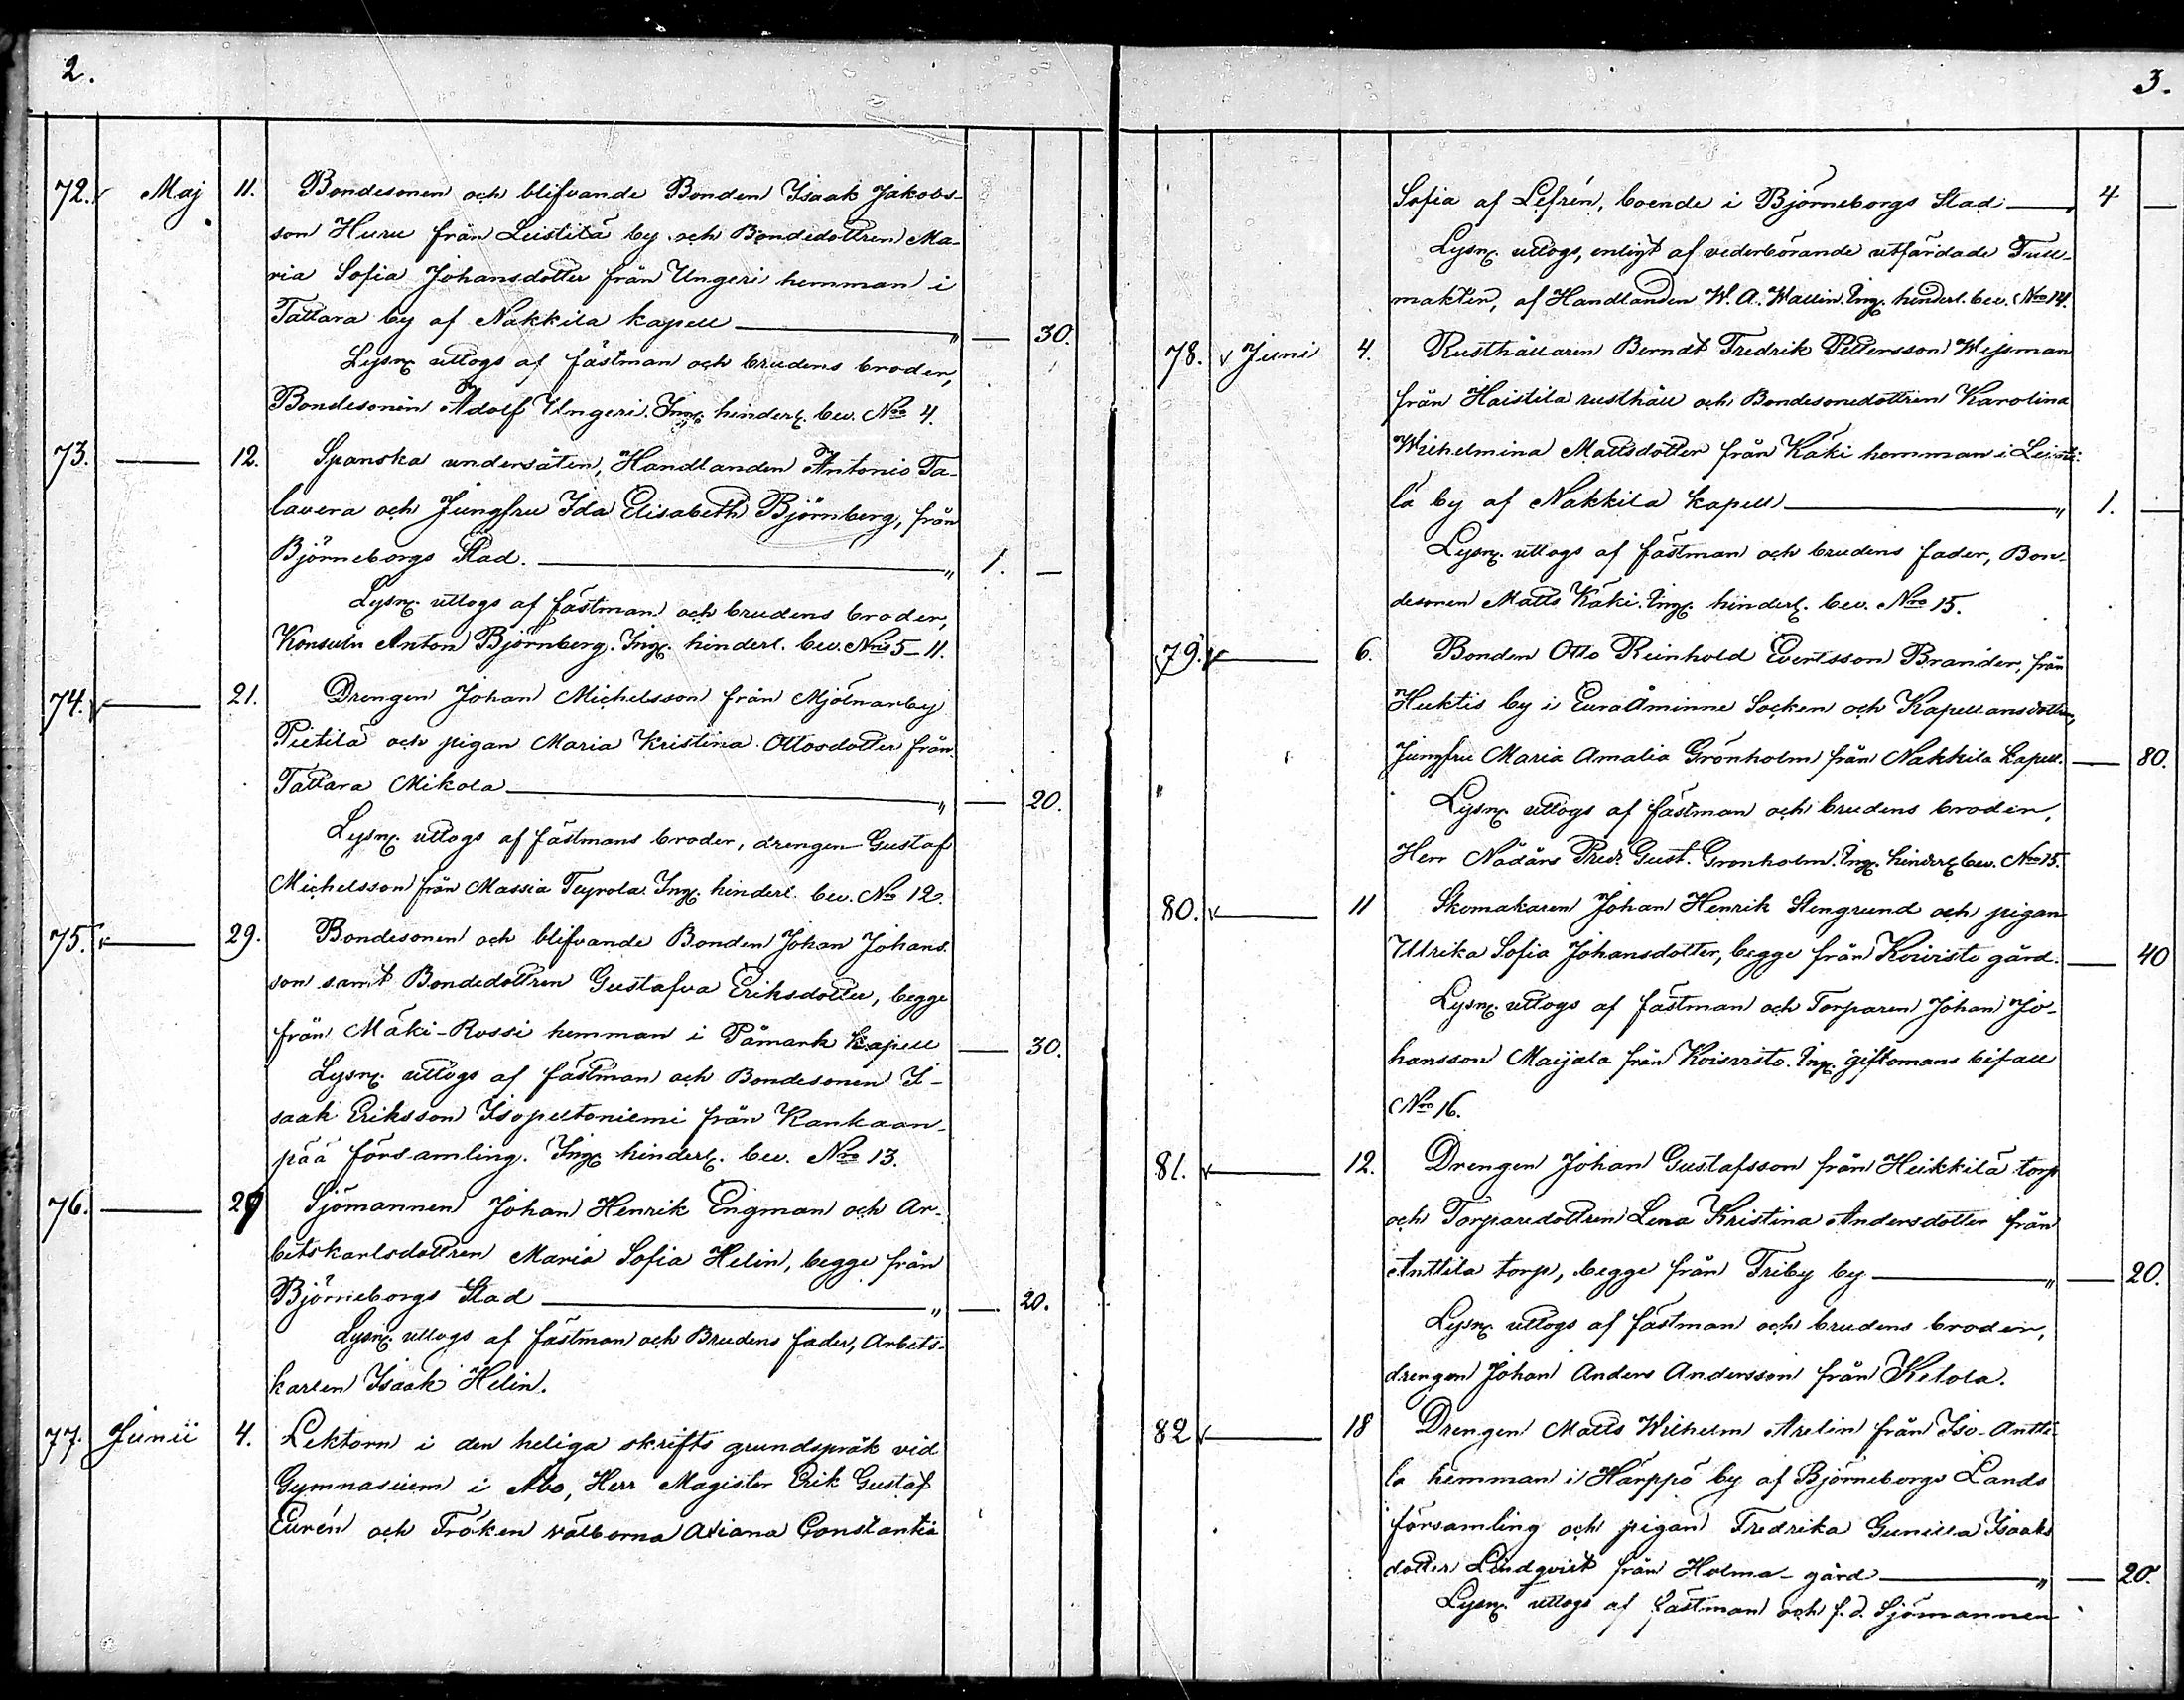 2.
72. Maj 11. Bondesonen och blifvande Bonden Isaak Jakobs-
son Huru från Leistilä by och Bondedottren Ma-
ria Sofia Johansdotter från Ungeri hemman i
Tattara by af Nakkila kapell — „ — 30.
Lysn. uttogs af fästman och brudens broder,
Bondesonen Adolf Ungeri. Ing. hinderl. bev. No 4.
73. — 12. Spanska undersåten, Handlanden Antonio Ta-
lavera och Jungfru Ida Elisabeth Björnberg, från
Björneborgs Stad. — „ 1. —
Lysn. uttogs af fästman och brudens broder,
Konsuln Anton Björnberg. Ing. hinderl. bev. Nris 5-11.
74. — 21. Drengen Johan Michelsson från Mjölnarby
Pietilä och pigan Maria Kristina Ottosdotter från
Tattara Mikola — „ — 20.
Lysn. uttogs af fästmans broder, drengen Gustaf
Michelsson från Massia Teyrola. Ing. hinderl. bev. No 12.
75. — 29. Bondesonen och blifvande Bonden Johan Johans-
son samt Bondedottren Gustafva Eriksdotter, begge
från Mäki-Rossi hemman i Påmark kapell — 30.
Lysn. uttogs af fästman och Bondesonen I-
saak Eriksson Isopeltoniemi från Kankaan-
pää församling. Ing. hinderl. bev. Nro 13.
76. — 29 Sjömannen Johan Henrik Engman och Ar-
betskarlsdottren Maria Sofia Helin, begge från
Björneborgs Stad — „ — 20.
Lysn. uttogs af fästman och Brudens fader, Arbets-
karlen Isaak Helin.
77. Junii 4. Lektorn i den heliga skrifts grundspråk vid
Gymnasium i Åbo, Herr Magister Erik Gustaf
Eurén och Fröken välborna Axiana Constantia
3.
Sofia af Lefrén, boende i Björneborgs Stad — 4 —
Lysn. uttogs, enligt af vederbörande utfärdade Full-
makter, af Handlanden W. A. Wallin. Ing. hinderl. bev. Nro 14.
78. Juni 4. Rusthållaren Berndt Fredrik Pettersson Wejsman
från Haistila rusthåll och Bondesonedottren Karolina
Wilhelmina Mattsdotter från Käki hemman i Leisti-
lä by af Nakkila kapell — „ 1. —
Lysn. uttogs af fästman och brudens fader, Bon-
desonen Matts Käki. Ing. hinderl. bev. Nro 15.
79. — 6. Bonden Otto Reinhold Evertsson Brander, från
Huktis by i Euraåminne Socken och Kapellansdottren,
Jungfru Maria Amalia Grönholm från Nakkila kapell. — 80.
Lysn. uttogs af fästman och brudens broder,
Herr Nådårs Pred. Gust. Grönholm. Ing. hinderl. bev. Nro 15.
80. — 11 Skomakaren Johan Henrik Stengrund och pigan
Ulrika Sofia Johansdotter, begge från Koivisto gård. — 40
Lysn. uttogs af fästman och Torparen Johan Jo-
hansson Maijala från Koivisto. Ing. giftomans bifall
Nro 16.
81. — 12. Drengen Johan Gustafsson från Heikkilä torp
och Torparedottren Lena Kristina Andersdotter från
Anttila torp, begge från Friby by — „ — 20.
Lysn. uttogs af fästman och brudens broder,
drengen Johan Anders Andersson från Ketola.
82 — 18 Drengen Matts Wilhelm Arelin från Iso-Antti-
la hemman i Härppö by af Björneborgs Lands
församling och pigan Fredrika Gunilla Isaaks
dotter Lindqvist från Holma-gård — „ — 20.
Lysn. uttogs af fästman och f.d. Sjömannen